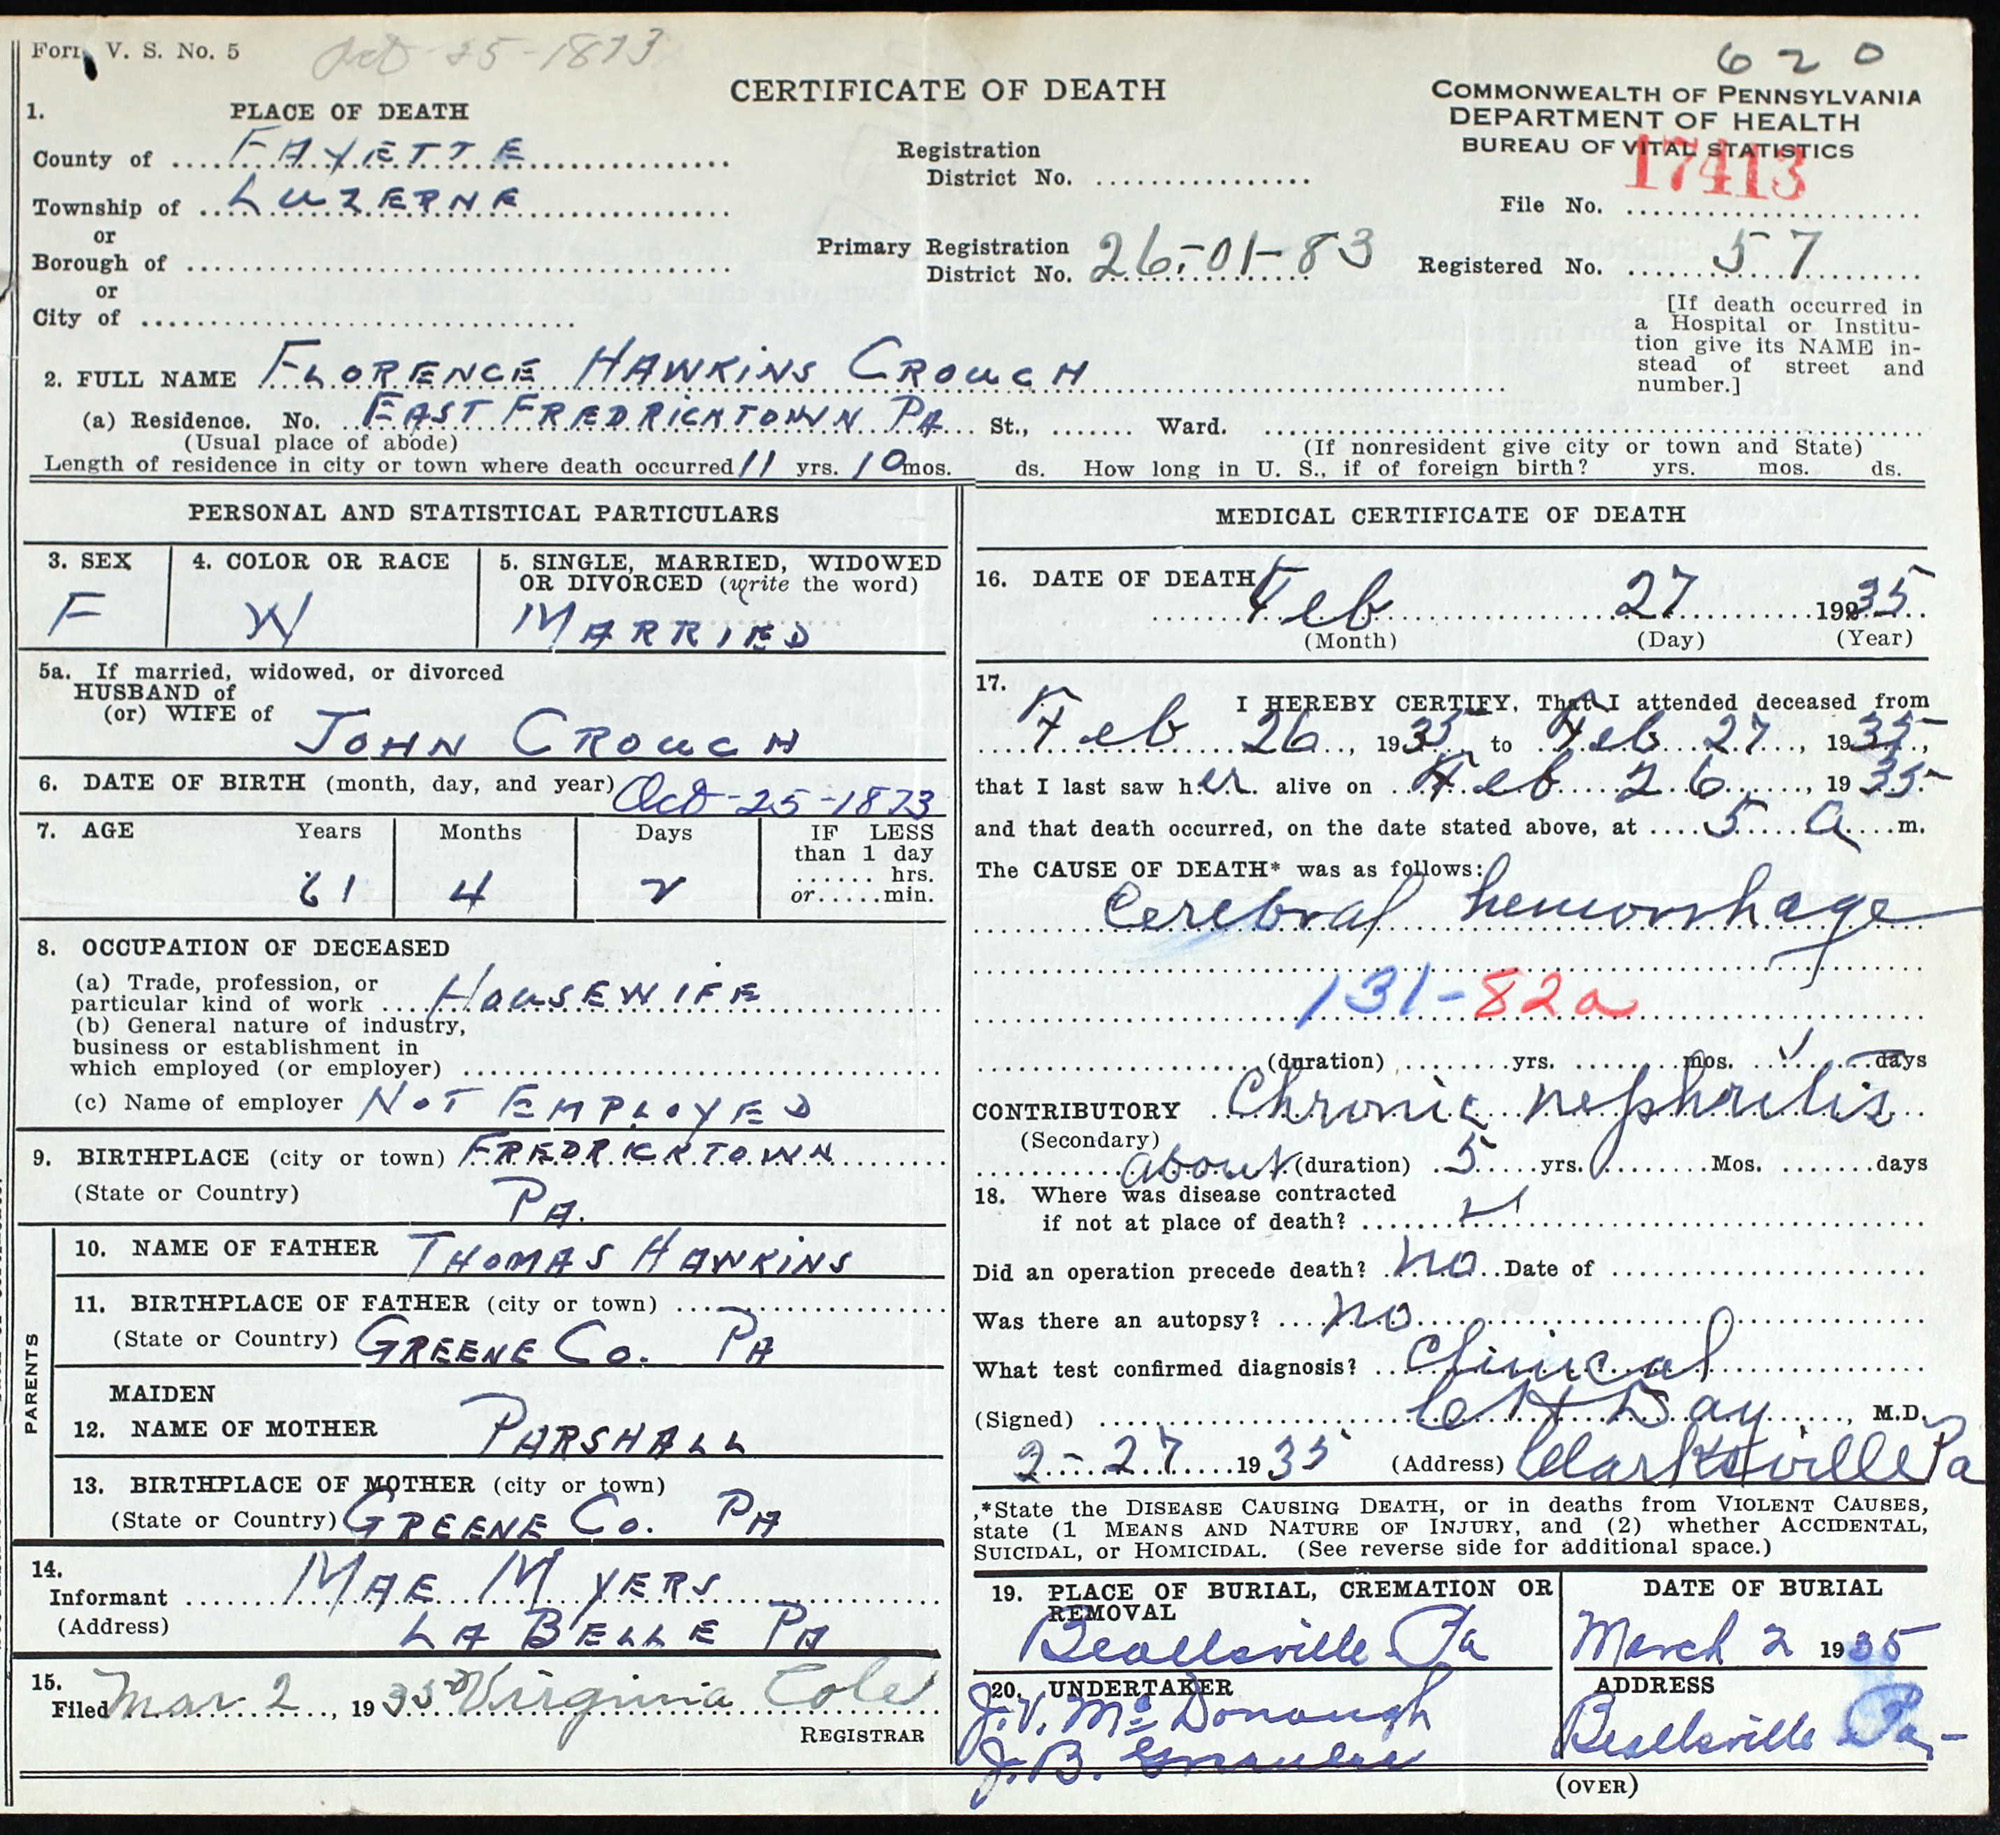 Form V. S. No. 5
Oct-25-1873
620
CERTIFICATE OF DEATH
COMMONWEALTH OF PENNSYLVANIA
DEPARTMENT OF HEALTH
BUREAU OF VITAL STATISTICS
17413
File No. ....................
Registered No. 57
[If death occurred in
a Hospital or Institu-
tion give its NAME in-
stead of street and
number.]
1. PLACE OF DEATH
County of FAYETTE
Township of LUZERNE
or
Borough of ....................
or
City of ....................
Registration
District No. ....................
Primary Registration
District No. 26-01-83
2. FULL NAME FLORENCE HAWKINS CROUCH
(a) Residence. No. EAST FREDRICKTOWN PA St., ....... Ward. ....................
(Usual place of abode) (If nonresident give city or town and State)
Length of residence in city or town where death occurred 11 yrs. 10 mos. ds. How long in U. S., if of foreign birth? yrs. mos. ds.
PERSONAL AND STATISTICAL PARTICULARS
3. SEX
F
4. COLOR OR RACE
W
5. SINGLE, MARRIED, WIDOWED
OR DIVORCED (write the word)
MARRIED
5a. If married, widowed, or divorced
HUSBAND of
(or) WIFE of JOHN CROUCH
6. DATE OF BIRTH (month, day, and year) Oct-25-1873
7. AGE Years Months Days IF LESS
than 1 day
...... hrs.
or.....min.
61 4 2
8. OCCUPATION OF DECEASED
(a) Trade, profession, or
particular kind of work HOUSEWIFE
(b) General nature of industry,
business or establishment in
which employed (or employer) ....................
(c) Name of employer NOT EMPLOYED
9. BIRTHPLACE (city or town) FREDRICKTOWN
(State or Country) PA.
PARENTS
10. NAME OF FATHER THOMAS HAWKINS
11. BIRTHPLACE OF FATHER (city or town) ....................
(State or Country) GREENE CO. PA
MAIDEN
12. NAME OF MOTHER PARSHALL
13. BIRTHPLACE OF MOTHER (city or town)
(State or Country) GREENE CO. PA
14.
Informant MAE MYERS
(Address) LA BELLE PA
15.
Filed Mar. 2, 1935 Virginia Cole
REGISTRAR
MEDICAL CERTIFICATE OF DEATH
16. DATE OF DEATH Feb 27 19235
(Month) (Day) (Year)
17.
I HEREBY CERTIFY, That I attended deceased from
Feb 26, 1935 to Feb 27, 1935,
that I last saw her alive on Feb 26, 1935
and that death occurred, on the date stated above, at 5 a m.
The CAUSE OF DEATH* was as follows:
Cerebral hemorrhage
131-82a
(duration) yrs. mos. days
CONTRIBUTORY Chronic nephritis
(Secondary)
about (duration) 5 yrs. Mos. days
18. Where was disease contracted
if not at place of death? ....................
Did an operation precede death? no Date of ....................
Was there an autopsy? no
What test confirmed diagnosis? Clinical
(Signed) C H Day, M.D.
2-27 1935 (Address) Clarksville Pa
*State the DISEASE CAUSING DEATH, or in deaths from VIOLENT CAUSES,
state (1 MEANS AND NATURE OF INJURY, and (2) whether ACCIDENTAL,
SUICIDAL, or HOMICIDAL. (See reverse side for additional space.)
19. PLACE OF BURIAL, CREMATION OR
REMOVAL
Beallsville Pa
DATE OF BURIAL
March 2 1935
20. UNDERTAKER
J. V. McDonough
J. B.
ADDRESS
Beallsville Pa.
(OVER)